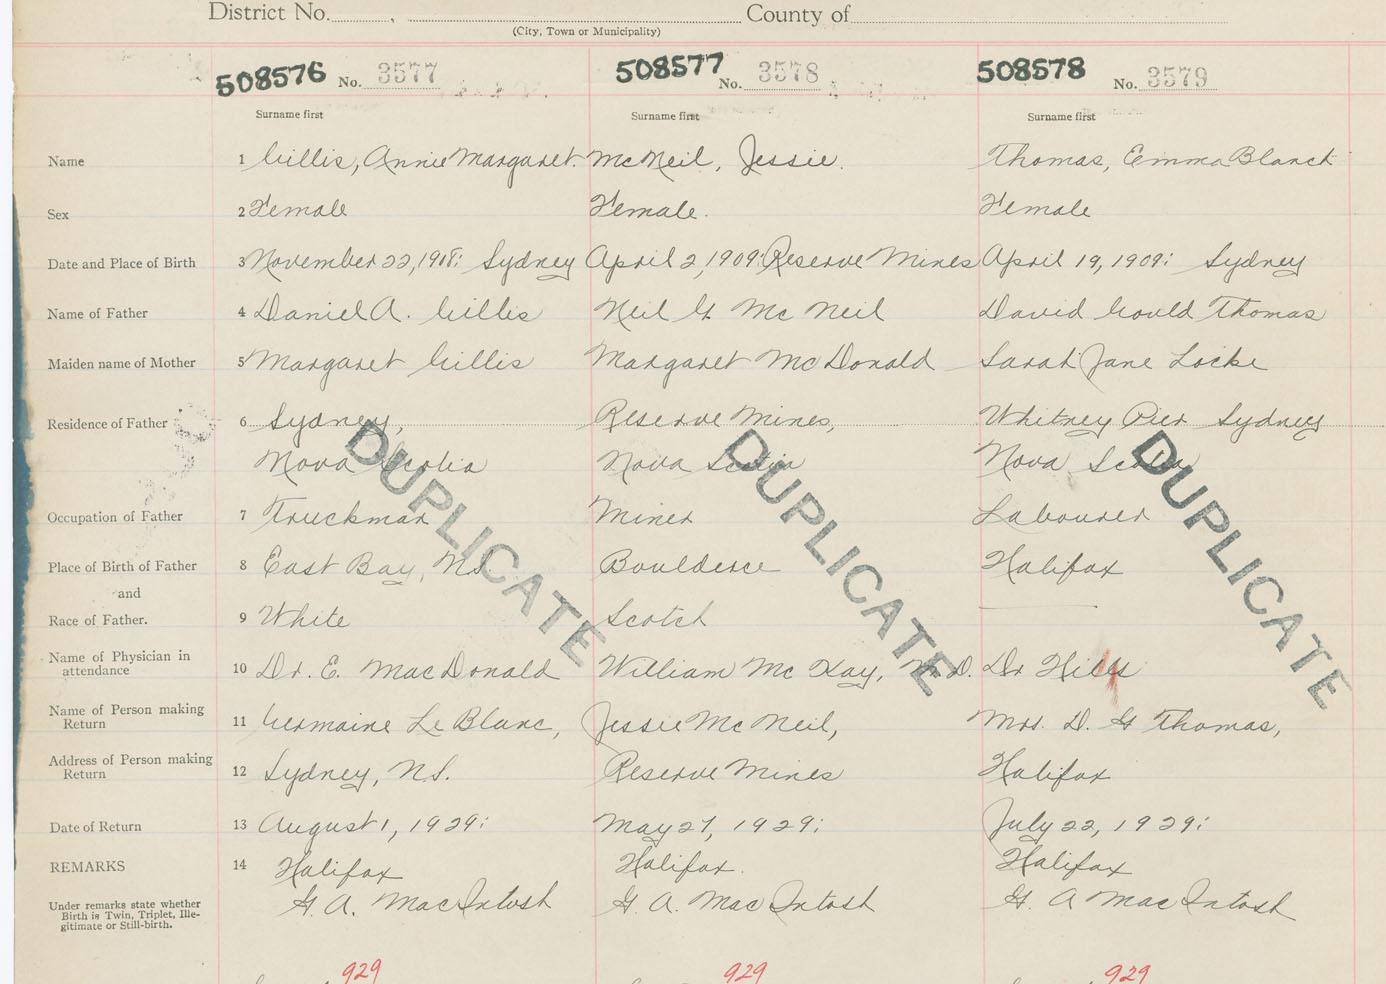 District No. , County of
(City, Town or Municipality)
508576 No. 3577 508577 No. 3578 508578 No. 3579
Surname first Surname first Surname first
Name 1 Gillis, Annie Margaret. McNeil, Jessie. Thomas, Emma Blanch
Sex 2 Female Female. Female
Date and Place of Birth 3 November 22, 1908: Sydney April 2, 1909: Reserve Mines April 19, 1909: Sydney
Name of Father 4 Daniel A. Gillis Neil G. McNeil David Gould Thomas
Maiden name of Mother 5 Margaret Gillis Margaret McDonald Sarah Jane Locke
Residence of Father 6 Sydney, Reserve Mines, Whitney Pier Sydney
Nova Scotia Nova Scotia Nova Scotia
DUPLICATE DUPLICATE DUPLICATE
Occupation of Father 7 Truckman Miner Labourer
Place of Birth of Father 8 East Bay, N.S. Boulderce Halifax
and
Race of Father. 9 White Scotch
Name of Physician in
attendance 10 Dr. E. MacDonald William McKay, M.D. Dr
Name of Person making
Return 11 Germaine LeBlanc, Jessie McNeil, Mrs. D. G Thomas,
Address of Person making
Return 12 Sydney, N.S. Reserve Mines Halifax
Date of Return 13 August 1, 1929: May 27, 1929: July 22, 1929:
REMARKS 14 Halifax Halifax. Halifax
G. A. MacIntosh G. A. MacIntosh G. A MacIntosh
Under remarks state whether
Birth is Twin, Triplet, Ille-
gitimate or Still-birth.
929 929 929